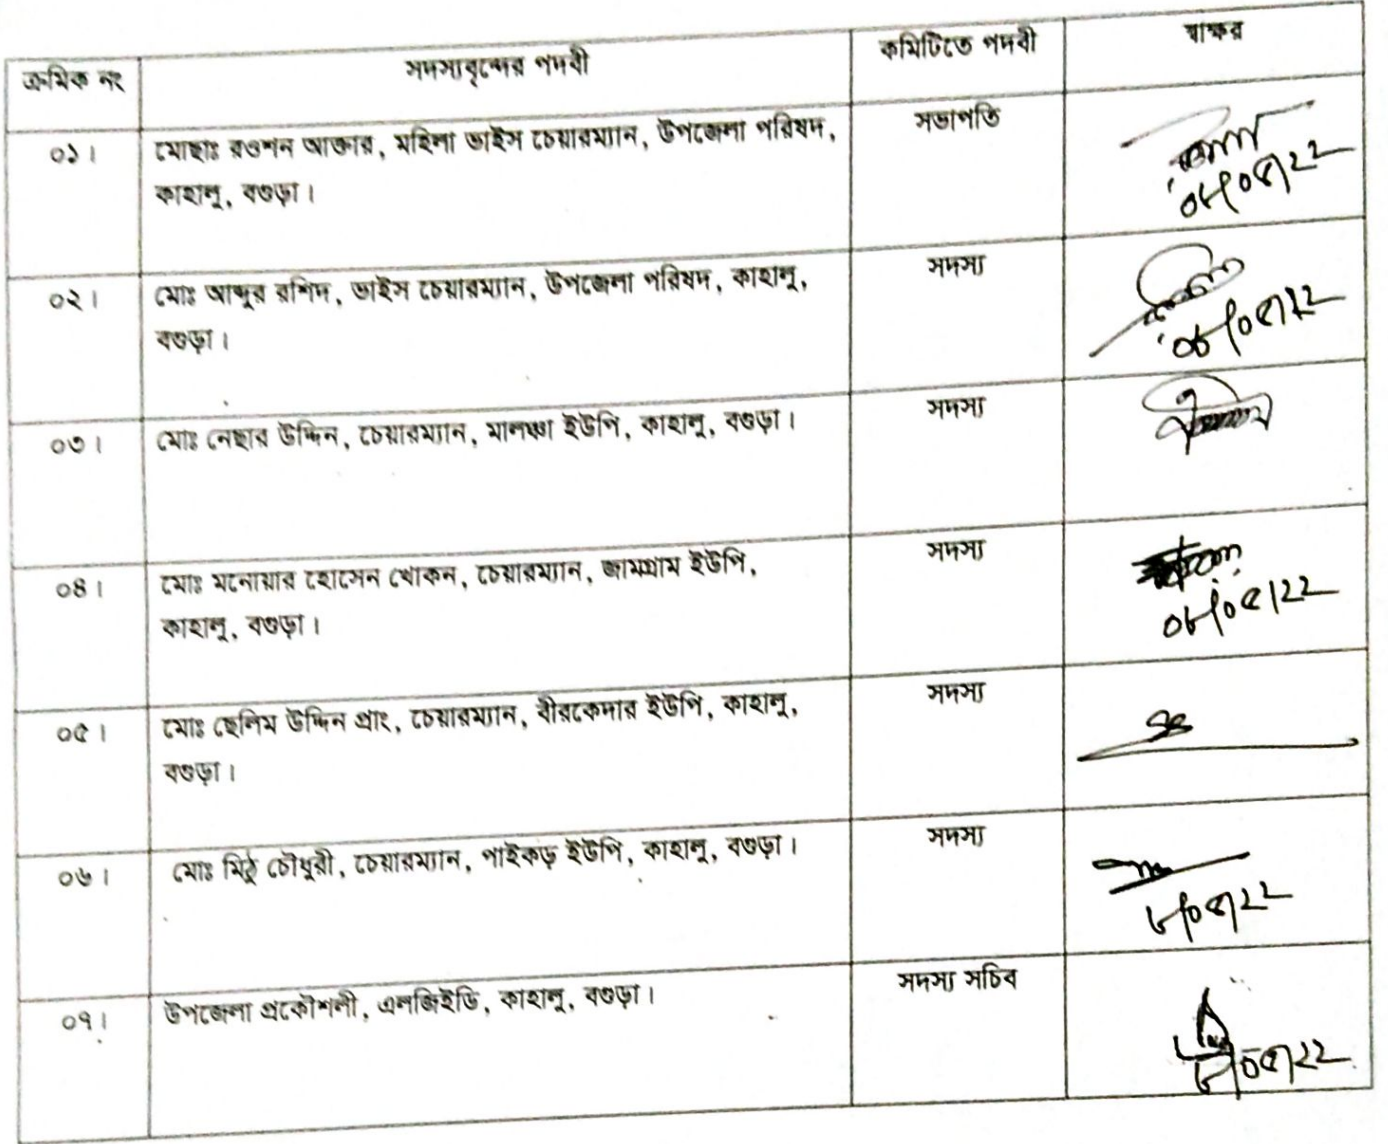 ক্রমিক নং সদস্যবৃন্দের পদবী কমিটিতে পদবী স্বাক্ষর
০১। মোছাঃ রওশন আক্তার, মহিলা ভাইস চেয়ারম্যান, উপজেলা পরিষদ, সভাপতি
কাহালু, বগুড়া।
০৮/০৫/২২
০২। মোঃ আব্দুর রশিদ, ভাইস চেয়ারম্যান, উপজেলা পরিষদ, কাহালু, সদস্য
বগুড়া।
০৮/০৫/২২
০৩। মোঃ নেছার উদ্দিন, চেয়ারম্যান, মালঞ্চা ইউপি, কাহালু, বগুড়া। সদস্য
০৪। মোঃ মনোয়ার হোসেন খোকন, চেয়ারম্যান, জামগ্রাম ইউপি, সদস্য
কাহালু, বগুড়া।
০৮/০৫/২২
০৫। মোঃ ছেলিম উদ্দিন প্রাং, চেয়ারম্যান, বীরকেদার ইউপি, কাহালু, সদস্য
বগুড়া।
০৬। মোঃ মিঠু চৌধুরী, চেয়ারম্যান, পাইকড় ইউপি, কাহালু, বগুড়া। সদস্য
৮/০৫/২২
০৭। উপজেলা প্রকৌশলী, এলজিইডি, কাহালু, বগুড়া। সদস্য সচিব
৮/০৫/২২